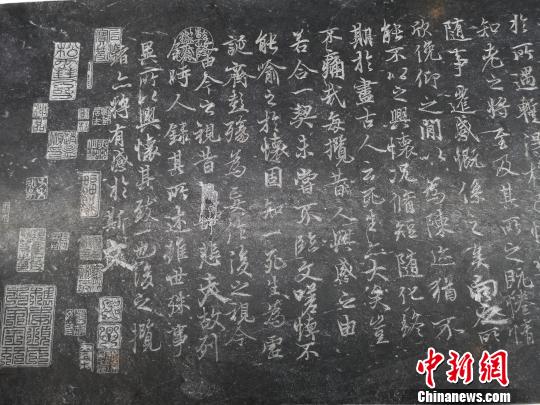 於所遇蹔得於
知老之將至及其所之既惓情
隨事遷感慨係之矣向之所
欣俛仰之閒以為陳迹猶不
能不以之興懷況脩短隨化終
期於盡古人云死生亦大矣豈
不痛哉每攬昔人興感之由
若合一契未嘗不臨文嗟悼不
能喻之於懷固知一死生為虛
誕齊彭殤為妄作後之視今
亦由今之視昔悲夫故列
敘時人錄其所述雖世殊事
異所以興懷其致一也後之攬
者亦將有感於斯文
中新网
www.chinanews.com